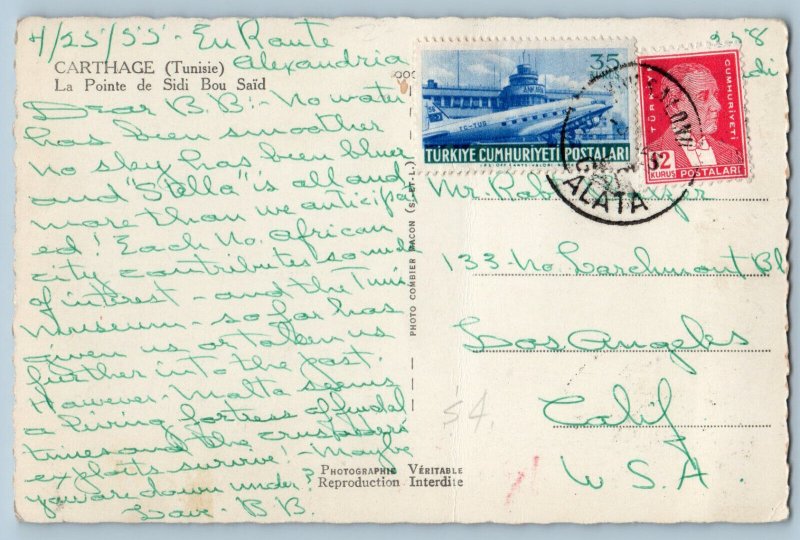 4/25/55 - En Route
Alexandria
CARTHAGE (Tunisie)
La Pointe de Sidi Bou Saïd
Dear B.B: - No water
has been smoother
no sky has been bluer
and "Stella" is all and
more than we anticipat
ed! Each No. African
city contributes so much
of interest - and the Tunis
Museum - so far has
given us or taken us
further into the past.
However - Malta seems
a living fortress of feudal
times and the crusaders
exploits survive! - Maybe
you are down under?
Love - B.B.
PHOTO COMBIER MACON (S.-ET-L.)
PHOTOGRAPHIE VÉRITABLE
Reproduction Interdite
35
ANKARA
TC-TUG
TÜRKİYE CUMHURİYETİ POSTALARI
TÜRKİYE
CUMHURİYETİ
2
KURUŞ POSTALARI
GALATA
258
Mr
133 No. Larchmont Bl
Los Angeles
Calif
U.S.A.
54.